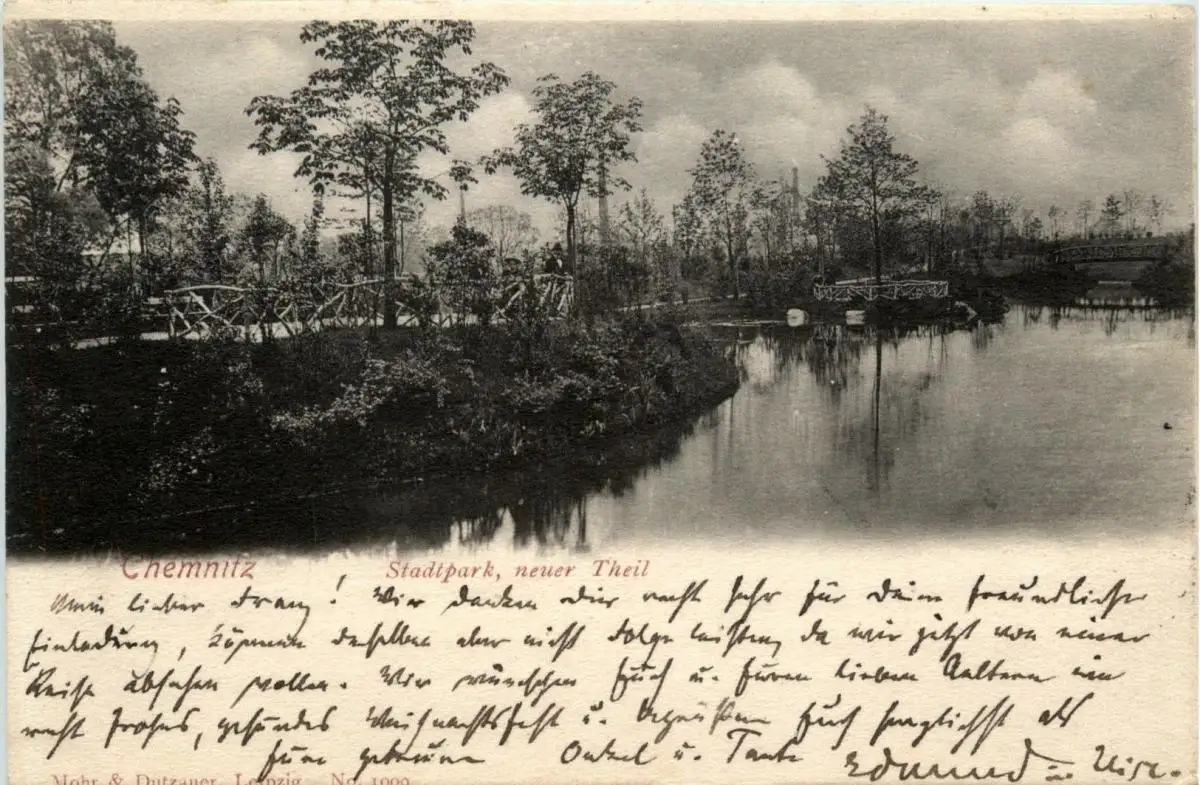 Chemnitz Stadtpark, neuer Theil
Mein lieber Franz! Wir danken dir recht sehr für deine freundliche
Einladung, können derselben aber nicht Folge leisten, da wir jetzt von einer
Reise absehen wollen. Wir wünschen Euch u. Euren lieben Aeltern ein
recht frohes, gesundes Weihnachtsfest u. begrüßen Euch herzlichst als
Eure getreuen Onkel u. Tante Edmund u.
Mohr & Dutzauer, Leipzig. No. 1009